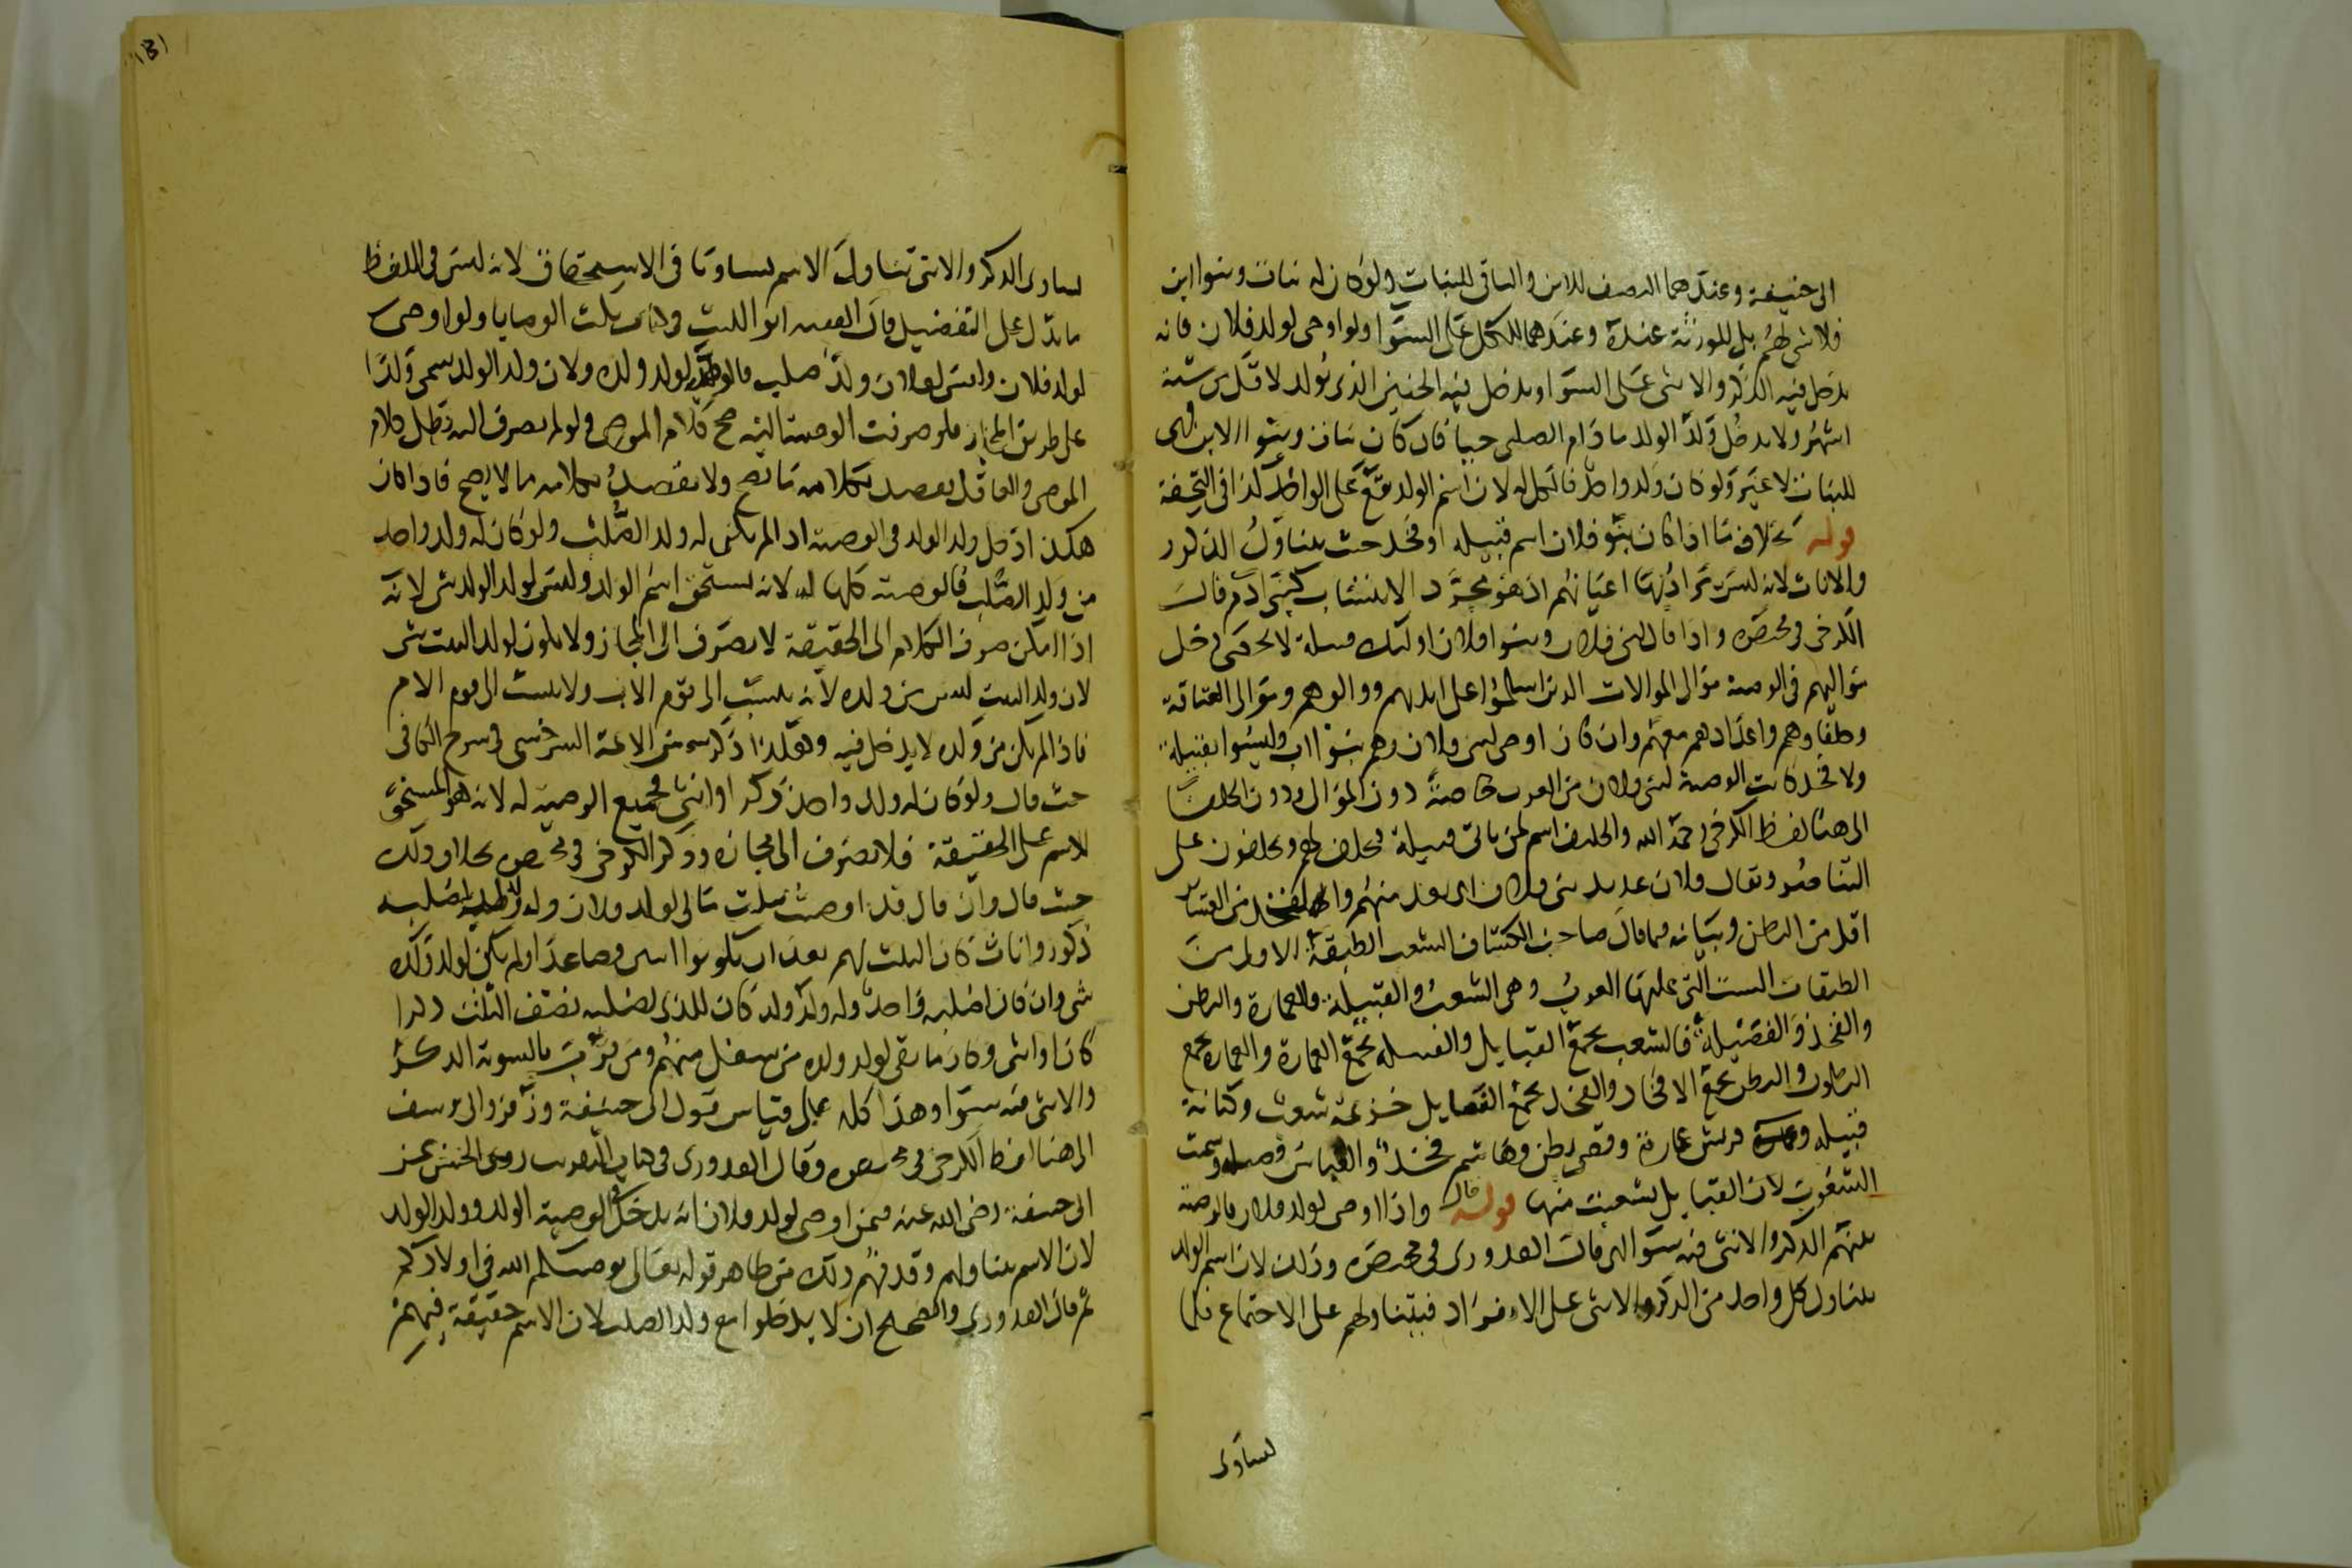 ابى حنيفة وعندهما النصف للابن والباقى للبنات ولو كان له بنات وبنوا ابن
فلا شى لهم بل للورثة عنده وعندهما الكل على السوا ولو اوصى لولد فلان فانه
يدخل فيه الذكر والانثى على السوا ويدخل فيه الجنين الذى يولد لاقل من ستة
اشهر ولا يدخل ولد الولد ما دام الصلبى حيا فان كان بنات وبنوا الابن فهى
للبنات لا غير ولو كان ولد واحد فالكل له لان اسم الولد يقع على الواحد كذا فى التحفة
قوله بخلاف ما اذا كان بنو فلان اسم قبيلة او فخذ حيث يتناول الذكور
والاناث لانه ليس يراد بها اعيانهم اذ هو مجرد الانتساب كبنى ادم قال
الكرخى فى مختصره واذا قال لبنى فلان وبنوا فلان اولئك قبيلة لا تحصى دخل
مواليهم فى الوصية موالى الموالات الذين اسلموا على ايديهم ووالوهم وموالى العتاقة
وحلفاوهم واعدادهم معهم وان كان اوصى لبنى فلان وهم بنوا اب وليسوا بقبيلة
ولا فخذ كانت الوصية لبنى فلان من العرب خاصة دون الموالى ودون الحلفا
الى هنا لفظ الكرخى رحمه الله والحليف اسم لمن ياتى قبيلة فيحلف لهم ويحلفون على
التناصر ويقال فلان عديد بنى فلان اى يعد منهم والفخذ من العشاير
اقل من البطن وبيانه فيما قال صاحب الكشاف الشعب الطبقة الاولى من
الطبقات الست التى عليها العرب وهى الشعب والقبيلة والعمارة والبطن
والفخذ والفصيلة فالشعب يجمع القبايل والقبيلة تجمع العمارة والعمارة تجمع
البطون والبطن يجمع الافخاذ والفخذ يجمع الفصايل خزيمة شعب وكنانة
قبيلة وقريش عمارة وقصى بطن وهاشم فخذ والعباس فصيلة وسميت
الشعوب لان القبايل تشعبت منها قوله قال واذا اوصى لولد فلان فالوصية
بينهم الذكر والانثى فيه سوا اى قال القدورى فى مختصره وذلك لان اسم الولد
يتناول كل واحد من الذكر والانثى على الانفراد فيتناولهم على الاجتماع فلما
تساوى
١٣١
تساوى الذكر والانثى تناول الاسم تساويا فى الاستحقاق لانه ليس فى اللفظ
ما يدل على التفضيل قال الفقيه ابو الليث فى كتاب نكت الوصايا ولو اوصى
لولد فلان وليس لفلان ولد صلب فالوصية لولد ولده ولان ولد الولد يسمى ولدا
على طريق المجاز فلو صرفت الوصية اليه صح كلام الموصى ولو لم يصرف اليه بطل كلام
الموصى والعاقل يقصد بكلامه ما يصح ولا يقصد بكلامه ما لا يصح فاذا كان
هكذا دخل ولد الولد فى الوصية اذا لم يكن له ولد الصلب ولو كان له ولد واحد
من ولد الصلب فالوصية كلها له لانه يستحق اسم الولد وليس لولد الولد شى لانه
اذا امكن صرف الكلام الى الحقيقة لا يصرف الى المجاز ولا يكون لولد البنت شى
لان ولد البنت ليس من ولده لانه ينسب الى قوم الاب ولا ينسب الى قوم الام
فاذا لم يكن من ولده لا يدخل فيه وهكذا ذكر شمس الايمة السرخسى فى شرح الكافى
حيث قال ولو كان له ولد واحد ذكر او انثى فجميع الوصية له لانه هو المستحق
للاسم على الحقيقة فلا يصرف الى مجازه وذكر الكرخى فى مختصره بخلاف ذلك
حيث قال وان قال قد اوصيت بثلث مالى لولد فلان وله ولد لصلبه
ذكور واناث كان الثلث لهم بعد ان يكونوا اثنين فصاعدا ولم يكن لولد ولده
شى وان كان لصلبه واحد وله ولد ولد كان للذى لصلبه نصف الثلث ذكرا
كان او انثى وكان ما بقى لولد ولده من سفل منهم ومن قرب بالسوية الذكر
والانثى فيه سوا وهذا كله على قياس قول ابى حنيفة وزفر وابى يوسف
الى هنا لفظ الكرخى فى مختصره وقال القدورى فى كتاب التقريب روى الحسن عن
ابى حنيفة رضى الله عنه فيمن اوصى لولد فلان انه يدخل فى الوصية الولد وولد الولد
لان الاسم يتناولهم وقد فهم ذلك من ظاهر قوله تعالى يوصيكم الله فى اولادكم
ثم قال القدورى والصحيح ان لا يدخلوا مع ولد الصلب لان الاسم حقيقة فيهم